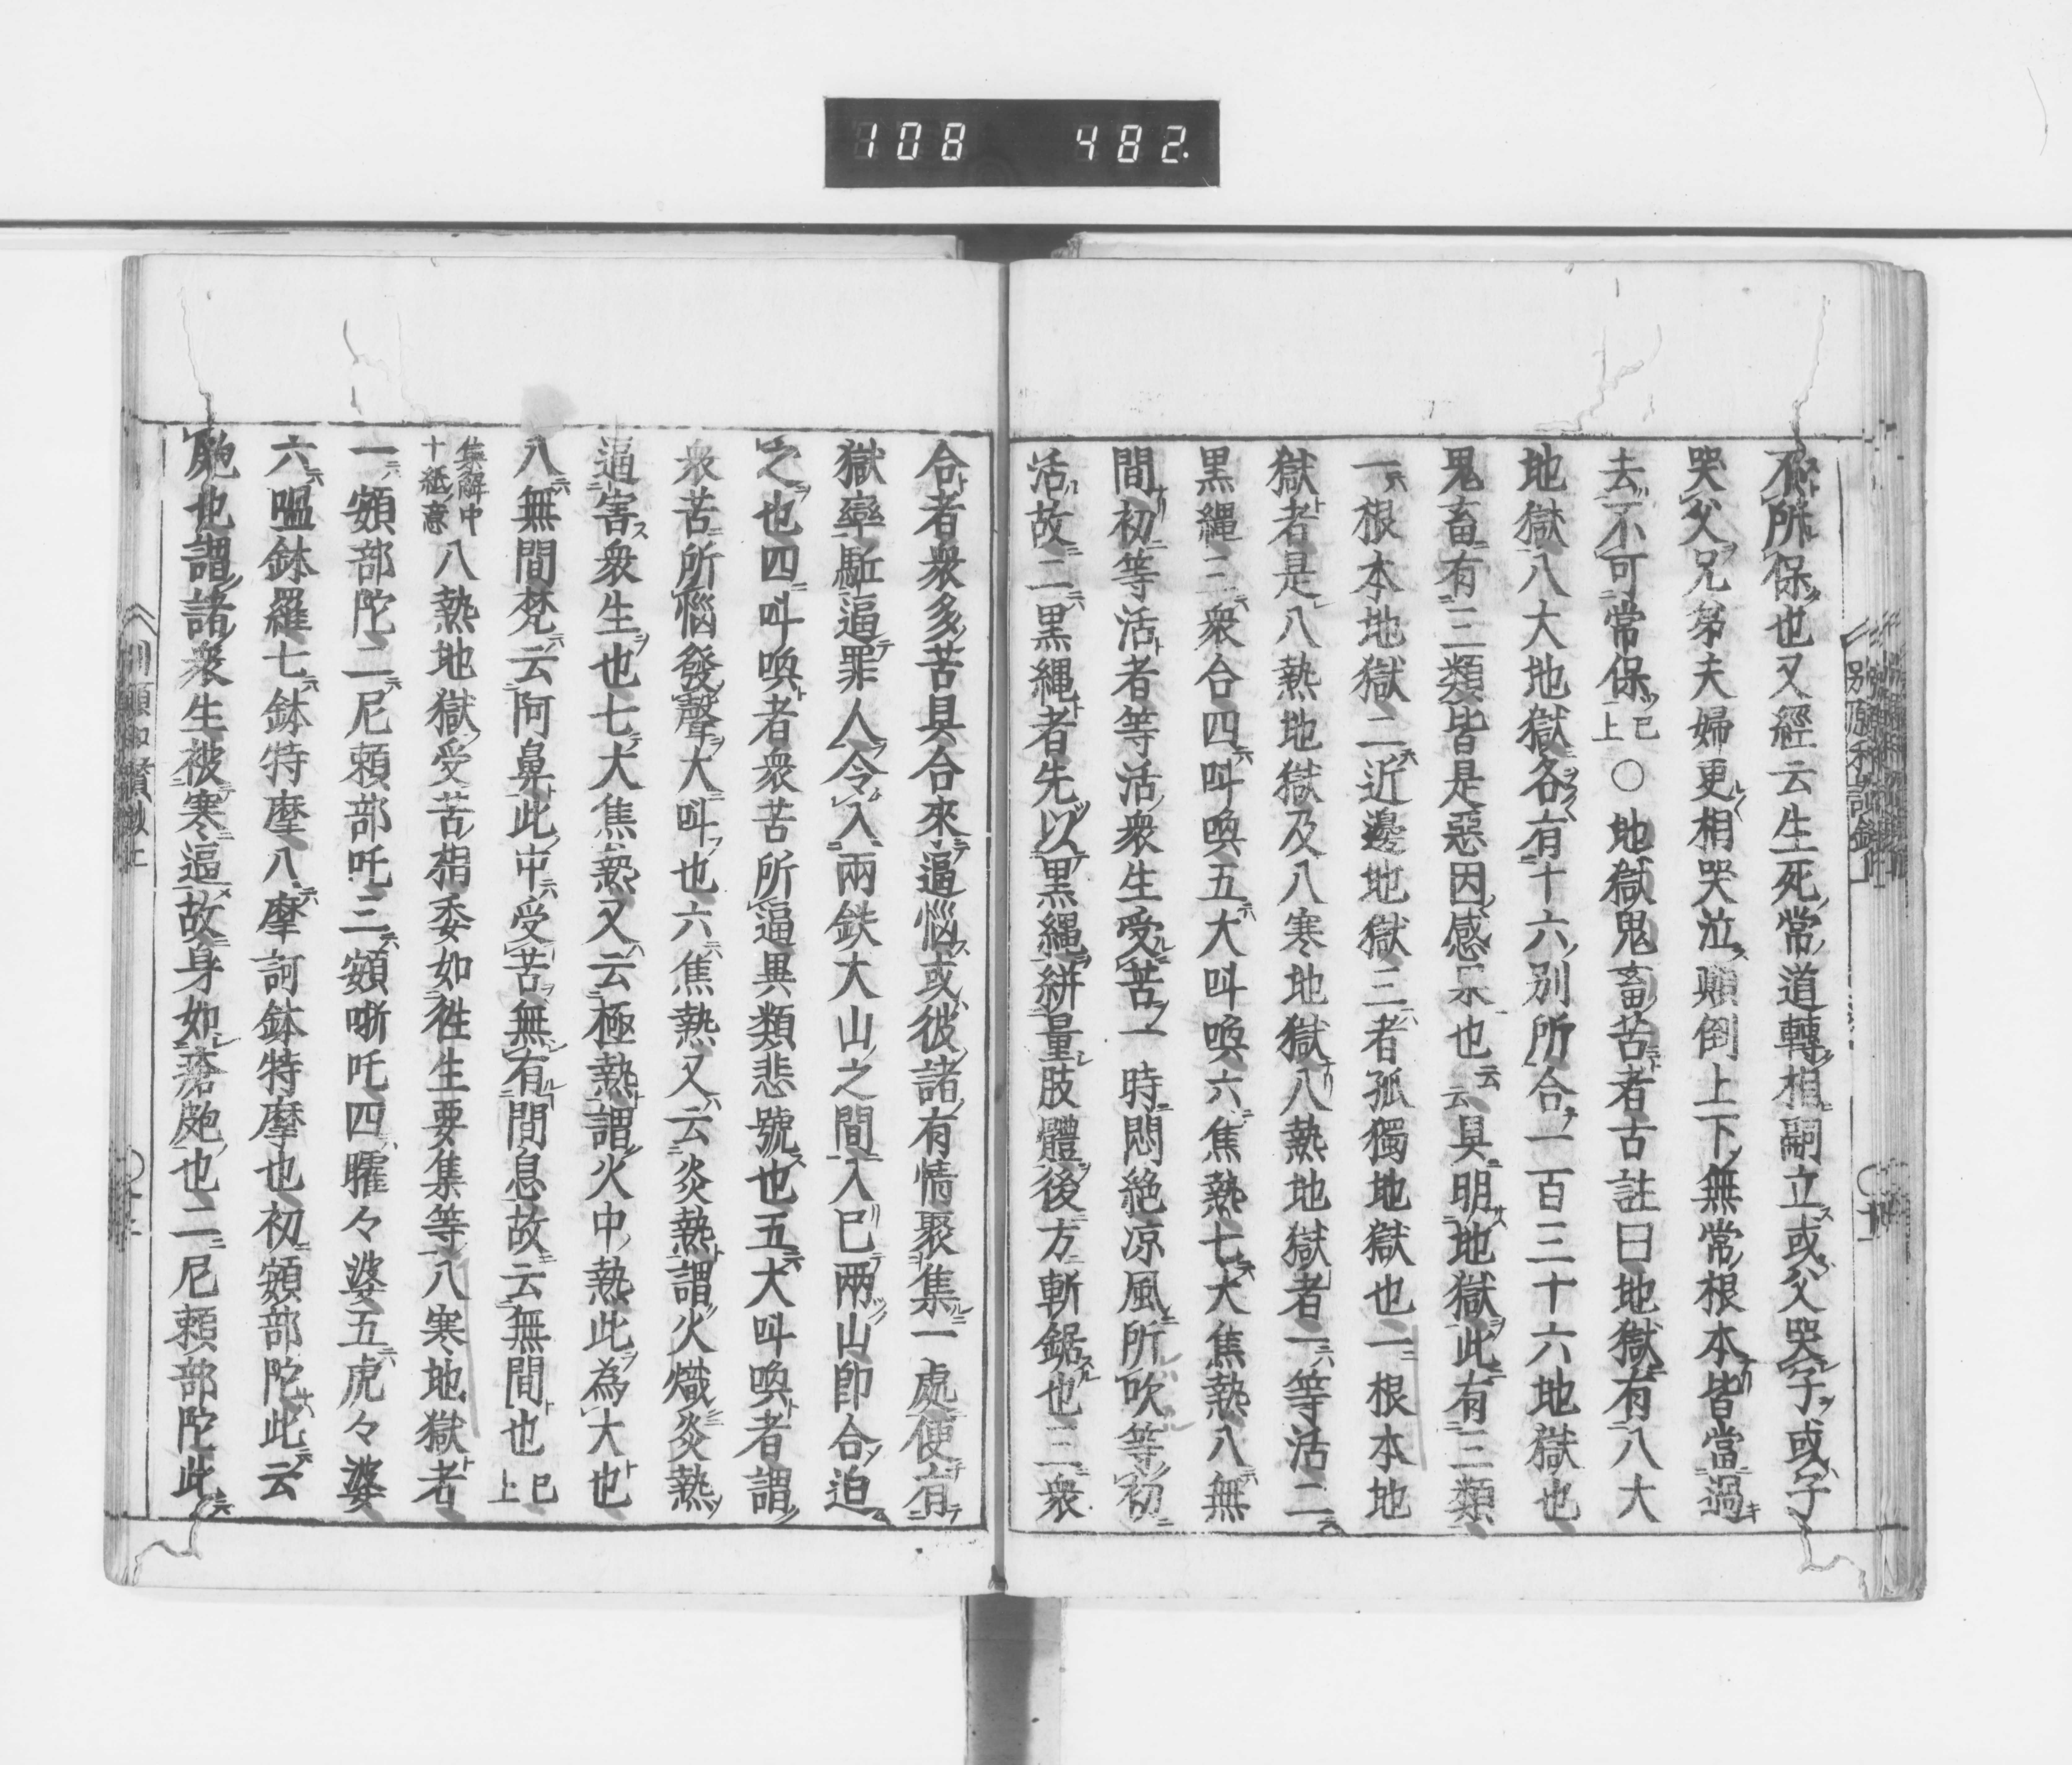 108 482.
不所保也又經云生死常道轉相嗣立或父哭子或子
哭父兄弟夫婦更相哭泣顛倒上下無常根本皆當過
去不可常保已上○地獄鬼畜苦者古註曰地獄有八大
地獄八大地獄各有十六別所合一百三十六地獄也
鬼畜有三類皆是惡因感果也云云具明地獄此有三類
一根本地獄二近邊地獄三者孤獨地獄也一根本地
獄者是八熱地獄及八寒地獄八熱地獄者一等活二
黒縄三衆合四叫喚五大叫喚六焦熱七大焦熱八無
間初等活者等活衆生受苦一時悶絶凉風所吹等初
活故二黒縄者先以黒縄絣量肢體後方斬鋸也三衆
合者衆多苦具合來逼惱或彼諸有情聚集一處便有
獄率駈逼罪人令入兩鉄大山之間入已兩山即合迫
之也四叫喚者衆苦所逼異類悲號也五大叫喚者謂
衆苦所惱發聲大叫也六焦熱又云炎熱謂火熾炎熱
逼害衆生也七大焦熱又云極熱謂火中熱此為大也
八無間梵云阿鼻此中受苦無有間息故云無間也已上
集解中十紙意八熱地獄受苦相委如徃生要集等八寒地獄者
一頞部陀二尼頼部吒三頞哳吒四臛々婆五虎々婆
六嗢鉢羅七鉢特摩八摩訶鉢特摩也初頞部陀此云
皰也謂諸衆生被寒逼故身如瘡皰也二尼頼部陀此